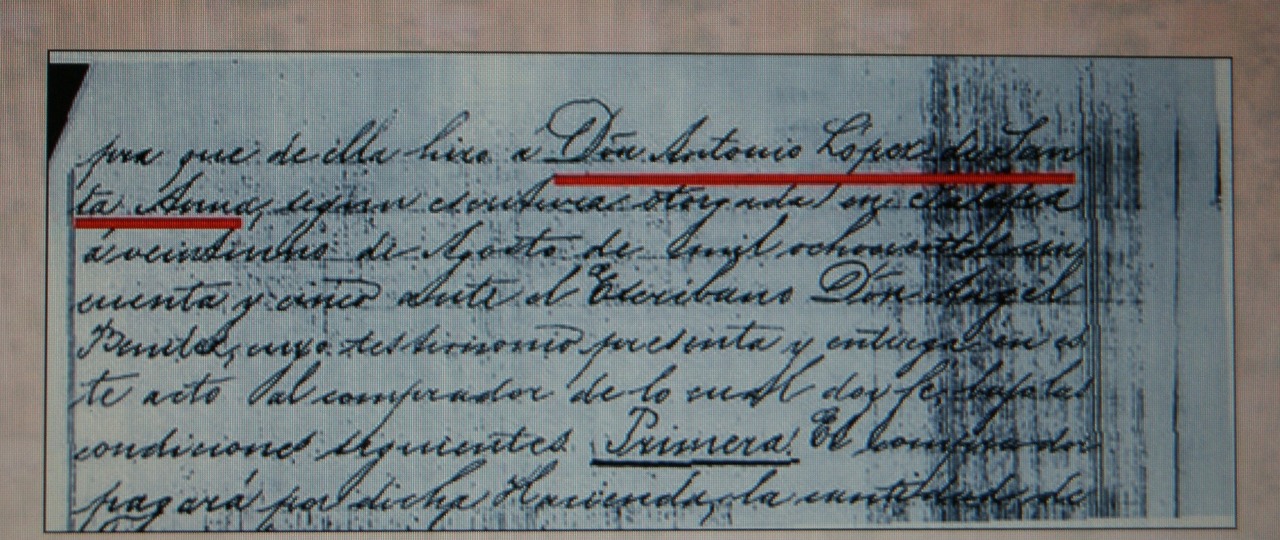 pra que de ella hizo á Dón Antonio López de San
ta Anna, segun escritura otorgada en Jalapa
á veintiuno de Agosto de mil ochocientos cin
cuenta y cinco ante el Escribano Dón Angel
Benitez, cuyo testimonio presenta y entrega en es
te acto al comprador de lo cual doy fe, bajo las
condiciones siguientes. Primera. El comprador
pagará por dicha Hacienda, la cantidad de